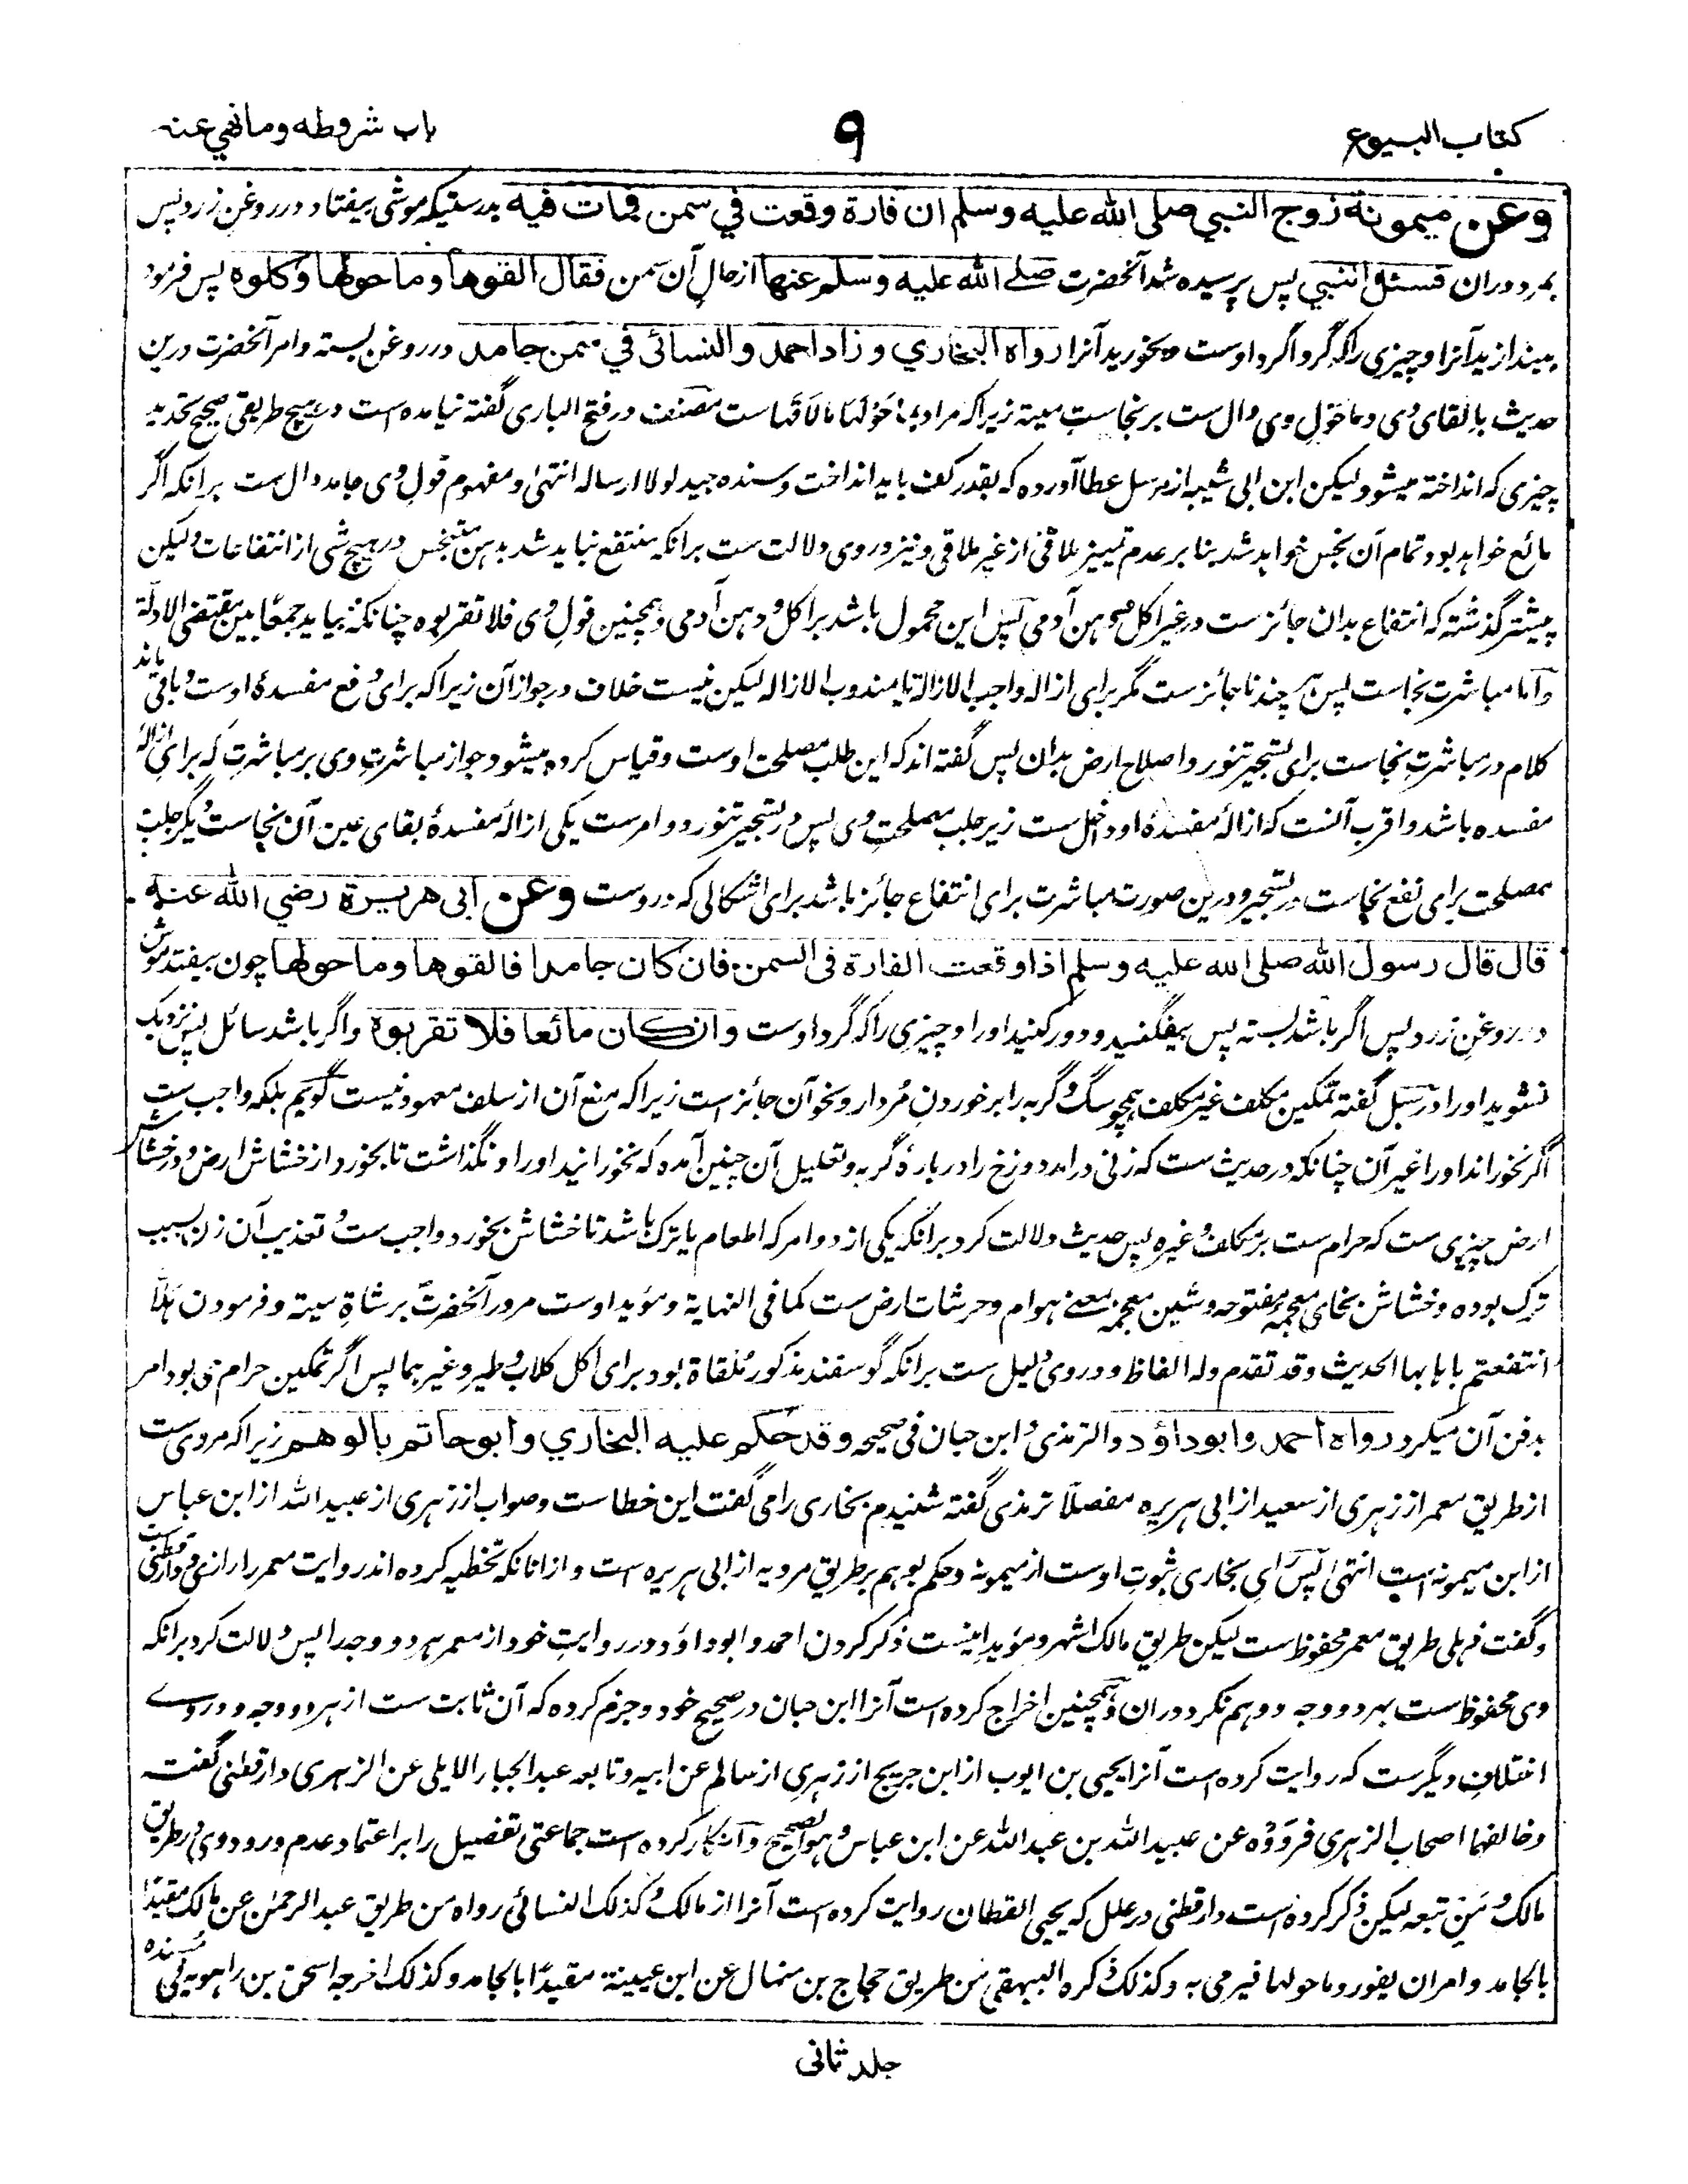 كتاب البيوع
٩
باب شروطه وما نهي عنه
وعن ميمونة زوج النبي صلى الله عليه وسلم ان فارة وقعت في سمن فماتت فيه بدرستیکه موشی بیفتاد در روغن زرد پس
بمرد دران فسئل النبي پس پرسیده شد آنحضرت صلے الله عليه وسلم عنها از حال آن سمن فقال القوها وما حولها وكلوه پس فرمود
بیندازید آنرا و چیزی را که گرداگرد اوست و بخورید آنرا رواه البخاري وزاد احمد والنسائی في سمن جامد در روغن بسته و امر آنحضرت درین
حدیث بالقای وی و ما حول وی دال ست بر نجاست میتة زیرا که مراد بما حولها ما لاقاها ست مصنف در فتح الباری گفته نیامده است در هیچ طریقی صحیح تحدید
چیزی که انداخته میشود لیکن ابن ابی شیبه از مرسل عطا آورده که بقدر کف باید انداخت وسنده جید لولا ارساله انتهیٰ و مفهوم قول وی جامد دال ست برانکه اگر
مائع خواهد بود تمام آن نجس خواهد شد بنا بر عدم تمییز ملاقی از غیر ملاقی و نیز در وی دلالت ست برانکه منتفع نباید شد بدهن متنجس در هیچ شی از انتفاعات ولیکن
پیشتر گذشته که انتفاع بدان جائز ست در غیر اکل و دهن آدمی پس این محمول باشد بر اکل و دهن آدمی و همچنین قول وی فلا تقربوه چنانکه بیاید جمعًا بین مقتضی الادلة
و اما مباشرت نجاست پس هر چند ناجائز ست مگر برای ازاله واجب الازاله یا مندوب الازاله لیکن نیست خلاف در جواز آن زیرا که برای دفع مفسدهٔ اوست و باقی ماند
کلام در مباشرت نجاست برای تسجیر تنور و اصلاح ارض بدان پس گفته اند که این طلب مصلحت اوست و قیاس کرده میشود جواز مباشرت وی بر مباشرت که برای ازالهٔ
مفسده باشد و اقرب آنست که ازالهٔ مفسدهٔ او داخل ست زیر جلب مصلحت وی پس در تسجیر تنور دو امر ست یکی ازالهٔ مفسدهٔ بقای عین آن نجاست دیگر جلب
مصلحت برای نفع نجاست در تسجیر و درین صورت مباشرت برای انتفاع جائز باشد برای اشکالی که دروست وعن ابی هريرة رضي الله عنه
قال قال رسول الله صلى الله عليه وسلم اذا وقعت الفارة فى السمن فان كان جامدا فالقوها وما حولها چون بیفتد موش
در روغن زرد پس اگر باشد بسته پس بیفگنید و دور کنید او را و چیزی را که گرد اوست وان كان مائعا فلا تقربوه و اگر باشد سائل پس نزدیک
نشوید او را در سبل گفته تمکین مکلف غیر مکلف همچو سگ و گربه را بر خوردن مردار و نحو آن جائز است زیرا که منع آن از سلف معهود نیست گویم بلکه واجب ست
اگر نخوراند او را غیر آن چنانکه در حدیث ست که زنی در امد دوزخ را دربارهٔ گربه و تعلیل آن چنین آمده که نخورانید او را و نگذاشت تا بخورد از خشاش ارض و در خشاش
ارض چیزی ست که حرام ست بر مکلف و غیره پس حدیث دلالت کرد برانکه یکی از دو امر که اطعام یا ترک باشد تا خشاش بخورد واجب ست و تعذیب آن زن بسبب
ترک بوده و خشاش بخای معجمه مفتوحه و شین معجمه بمعنے هوام و حشرات ارض ست کما فی النهایة و مؤید اوست مرور آنحضرت بر شاة میتة و فرمودن هلّا
انتفعتم باهابها الحدیث وقد تقدم وله الفاظ و در وی دلیل ست برانکه گوسفند مذکور ملقاة بود برای اکل کلاب و طیر و غیرهما پس اگر تمکین حرام می بود امر
بدفن آن میکرد رواه احمد وابوداؤد والترمذی وابن حبان فی صحیحه وقد حكم عليه البخاري وابوحاتم بالوهم زیرا که مروی ست
از طریق معمر از زهری از سعید از ابی هریره مفصلاً ترمذی گفته شنیدم بخاری را می گفت این خطا ست و صواب از زهری از عبید الله از ابن عباس
از ابن میمونه است انتهیٰ پس رای بخاری ثبوت اوست از میمونه و حکم بوهم بر طریق مرویه از ابی هریره است و ازانانکه تخطیه کرده اند روایت معمر را رازی و دارقطنی ست
و گفت ذهلی طریق معمر محفوظ ست لیکن طریق مالک اشهر و مؤید اینست ذکر کردن احمد و ابوداؤد در روایت خود از معمر هر دو وجه را پس دلالت کرد برانکه
وی محفوظ ست بهر دو وجه و وهم نکرد دران و همچنین اخراج کرده است آنرا ابن حبان در صحیح خود و جزم کرده که آن ثابت ست از هر دو وجه و دروے
اختلاف دیگر ست که روایت کرده است آنرا یحیی بن ایوب از ابن جریج از زهری از سالم عن ابیه و تابعه عبد الجبار الایلی عن الزهری دارقطنی گفت
وخالفهما اصحاب الزهری فرووه عن عبید الله بن عبد الله عن ابن عباس وهو الصحیح و انکار کرده است جماعتی تفصیل را بر اعتماد عدم ورود وی در طریق
مالک و من تبعه لیکن ذکر کرده است دارقطنی در علل که یحیی القطان روایت کرده است آنرا از مالک و کذلک النسائی رواه من طریق عبد الرحمٰن عن مالک مقیدًا
بالجامد وامر ان یقور وما حولها فیرمی به وکذلک ذکره البیهقی من طریق حجاج بن منهال عن ابن عیینة مقیدًا بالجامد وکذلک اخرجه اسحٰق بن راهویه فی مسنده
جلد ثانی